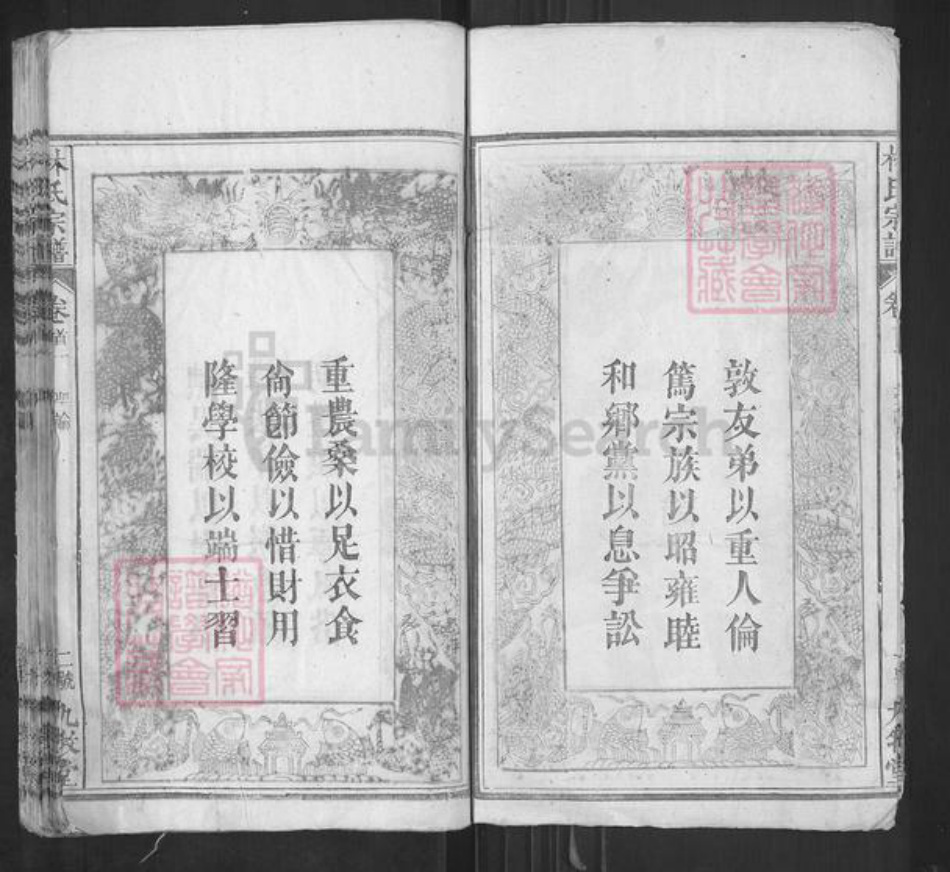 敦友弟以重人倫
篤宗族以昭雍睦
和鄉黨以息爭訟
重農桑以足衣食
尙節儉以惜財用
隆學校以端士習
林氏宗譜
卷首
聖諭
二號
九牧堂
FamilySearch